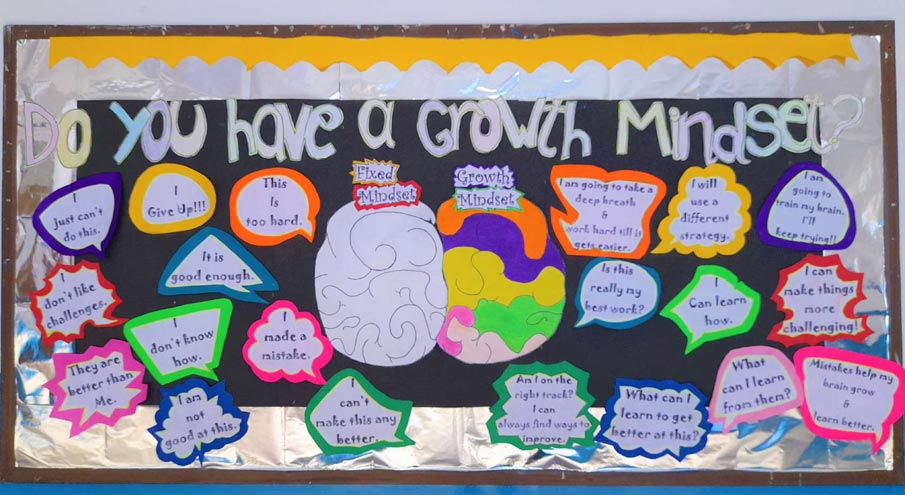 Do you have a Growth Mindset?
Fixed
Mindset
Growth
Mindset
I
just can't
do this.
I
Give Up!!!
This
Is
too hard.
It is
good enough.
I
don't like
challenges.
I
don't know
how.
I
made a
mistake.
They are
better than
Me.
I am
not
good at this.
I
can't
make this any
better.
I am going to take a
deep breath
&
work hard till it
gets easier.
I will
use a
different
strategy.
I am
going to
train my brain.
I'll
keep trying!!
Is this
really my
best work?
I
Can learn
how.
I can
make things
more
challenging!
Am I on the
right track?
I can
always find ways to
improve.
What can I
learn to get
better at this?
What
can I learn
from them?
Mistakes help my
brain grow
&
learn better.